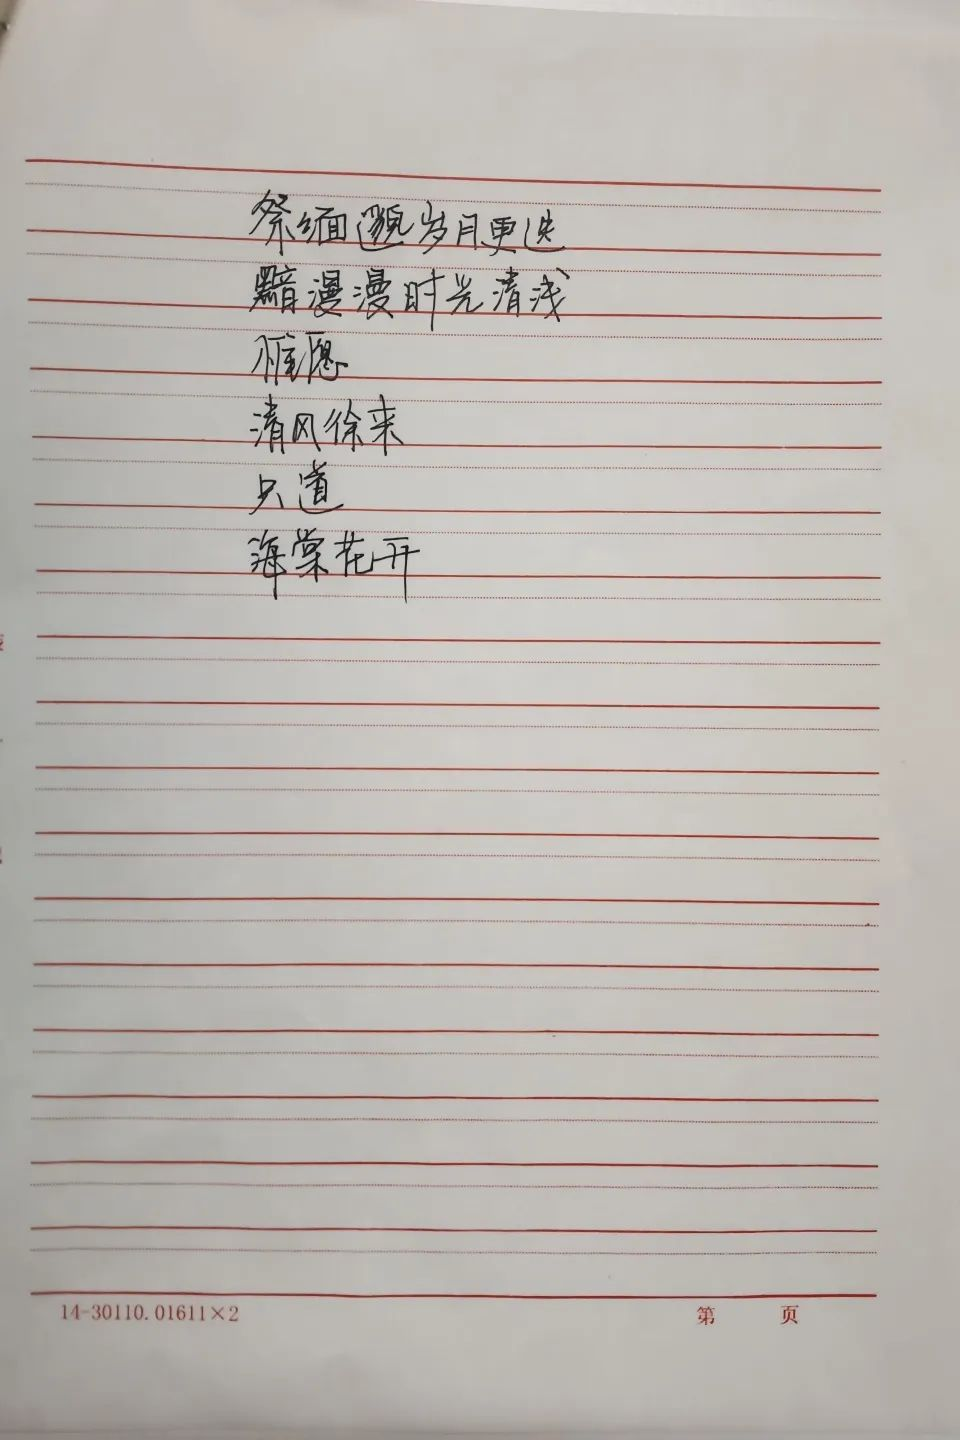 祭缅邈岁月更迭
黯漫漫时光清浅
惟愿
清风徐来
只道
海棠花开
14-30110.01611×2
第 页